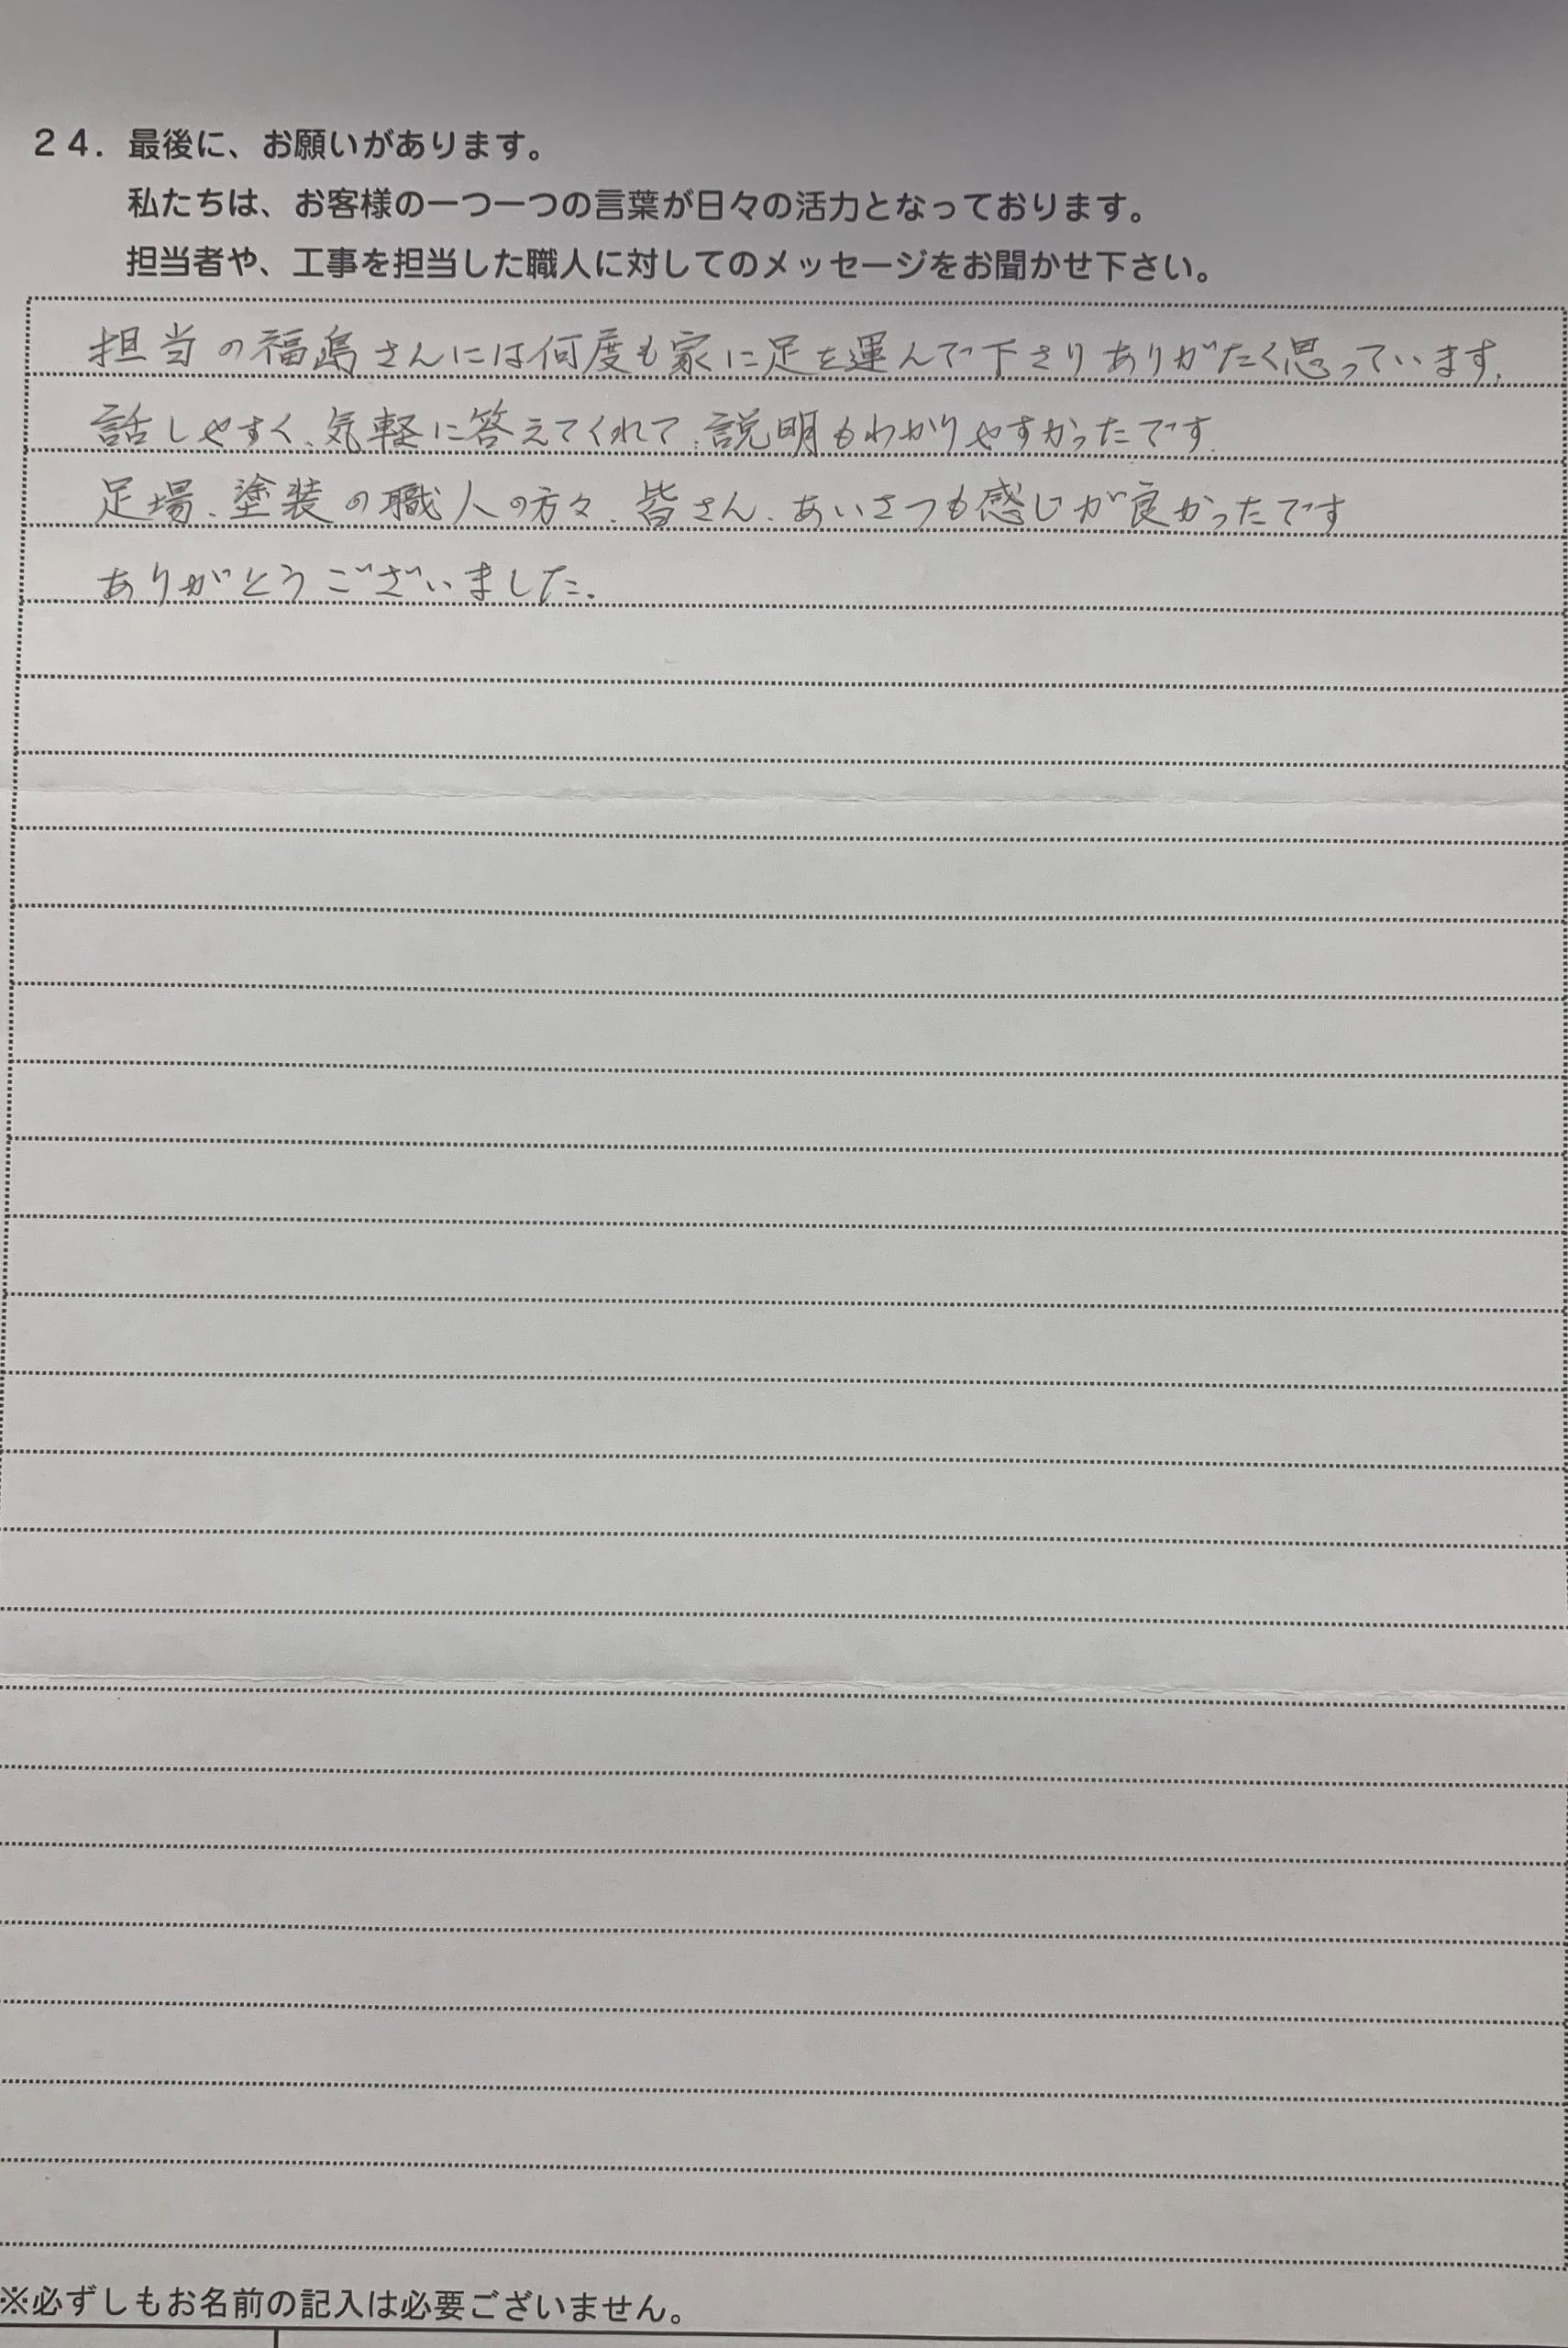 ２４．最後に、お願いがあります。
私たちは、お客様の一つ一つの言葉が日々の活力となっております。
担当者や、工事を担当した職人に対してのメッセージをお聞かせ下さい。
担当の福島さんには何度も家に足を運んで下さりありがたく思っています。
話しやすく、気軽に答えてくれて、説明もわかりやすかったです。
足場、塗装の職人の方々、皆さん、あいさつも感じが良かったです
ありがとうございました。
※必ずしもお名前の記入は必要ございません。